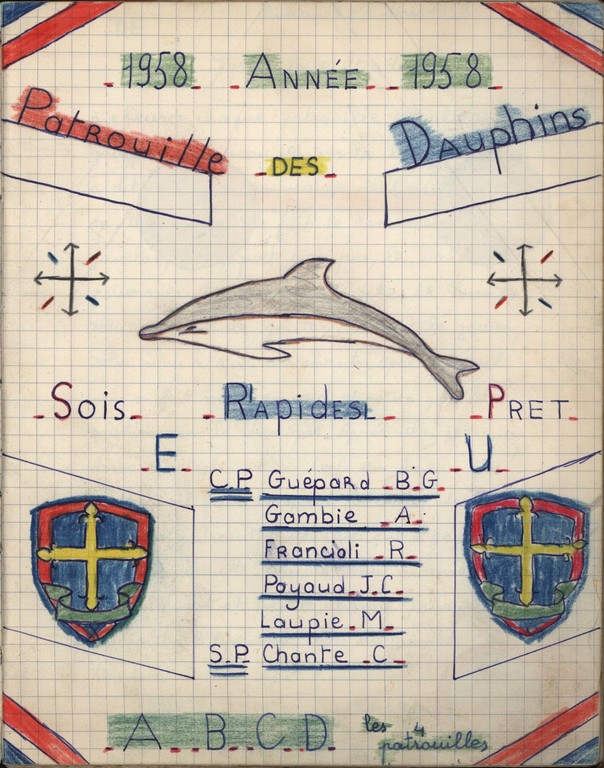 1958 ANNÉE 1958
Patrouille DES Dauphins
Sois RApides PRET
E U
C.P. Guépard B.G.
Gambie A.
Francioli R.
Poyaud J.C.
Laupie M.
S.P. Chante C.
A B C D les 4 patrouilles